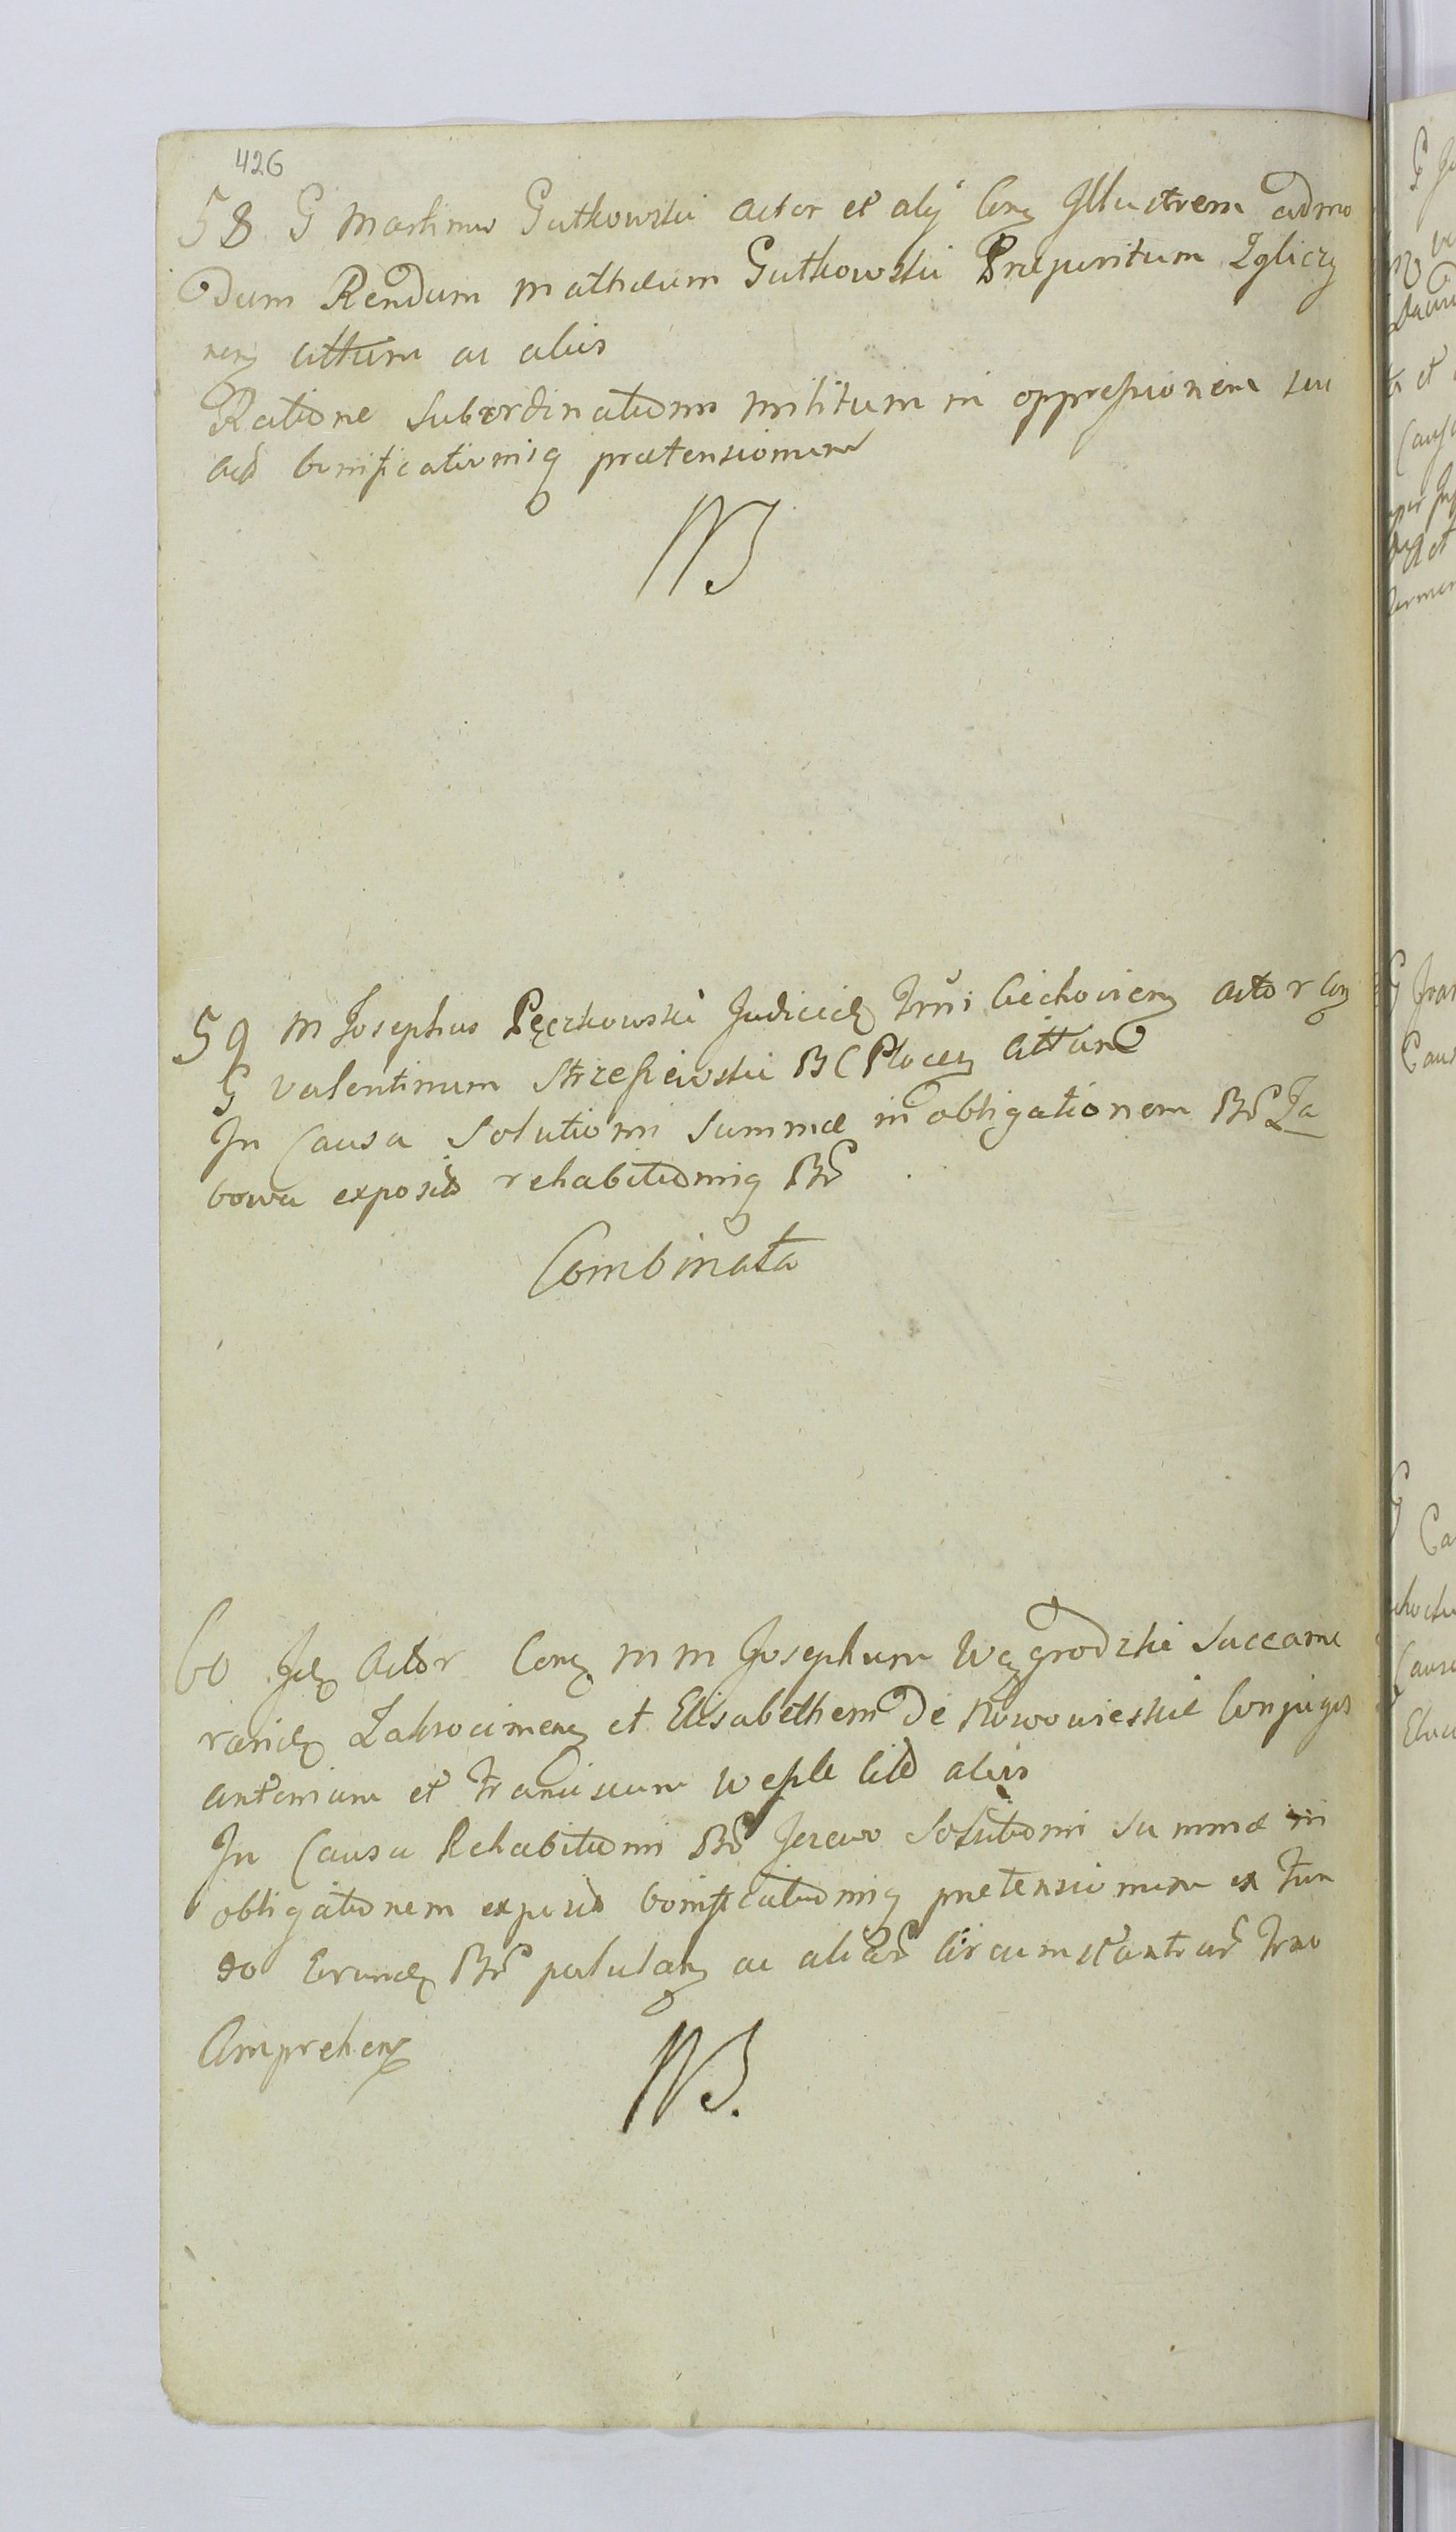 426
58 G Martinus Gutkowski Actor et alij Conq Illustrem admo
dum Rendum Mathæum Gutkowski Præpositum Zgliczy
nenq Cittum ac alios
Ratione Subordinationis militum in oppressionem sui
bonificationisq prætensionum
NB
59 M Josephus Pęczkowski Judicidq Trrii Ciechovienq Actor Conq
G Valentinum Strzeszewski BC Plocenq Cittum
In Causa Solutionis Summæ in obligationem Bor Za
bowa exposit rehabitionisq Bor
Combinata
60 Idq Actor Conq M M Josephum Węgrodzki Succame
raridq Zakrocimenq et Elisabetham De Nowowieskie Conjuges
Antonium et Franciscum Wessle Cit alios
In Causa Rehabitionis Bor Jezewo Solutionis Summæ in
obligationem exposit bonificationisq prætensionum ex Fun
do Eorundq Bor patulanq ac aliar Circumstantiar Trno
Comprehenq
NB.